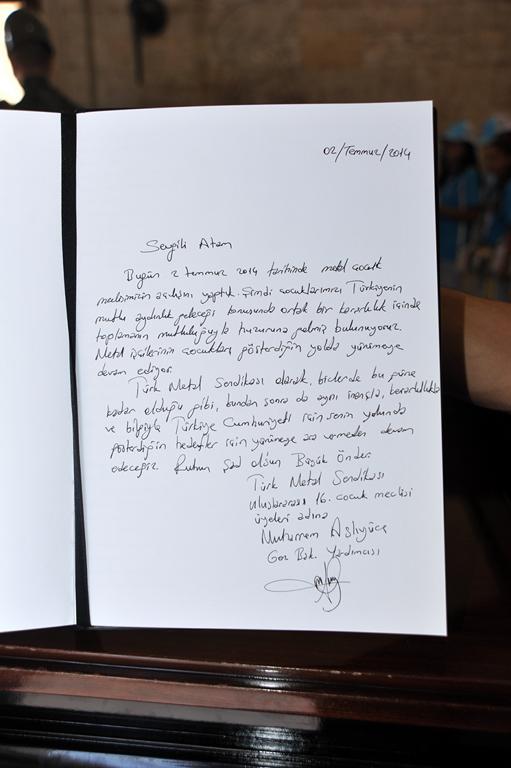 02/Temmuz/2014
Sevgili Atam
Bugün 2 temmuz 2014 tarihinde metal çocuk
meclisimizin açılışını yaptık. Şimdi çocuklarımızı Türkiyenin
mutlu aydınlık geleceği konusunda ortak bir kararlılık içinde
toplamanın mutluluğuyla huzuruna gelmiş bulunuyoruz.
Metal işçilerinin çocukları gösterdiğin yolda yürümeye
devam ediyor.
Türk Metal Sendikası olarak, bizlerde bu güne
kadar olduğu gibi, bundan sonra da aynı inançla, kararlılıkla
ve bilgiyle Türkiye Cumhuriyeti için senin yolunda
gösterdiğin hedefler için yürümeye ara vermeden devam
edeceğiz. Ruhun Şad olsun Büyük Önder.
Türk Metal Sendikası
uluslararası 16. çocuk meclisi
üyeleri adına
Muharrem Aslıyüce
Gen Bşk. Yardımcısı